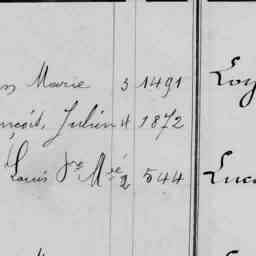 Marie 3 1491 Loy
nçois, Julien 4 1872
Louis Je Mié 2 544 Luc